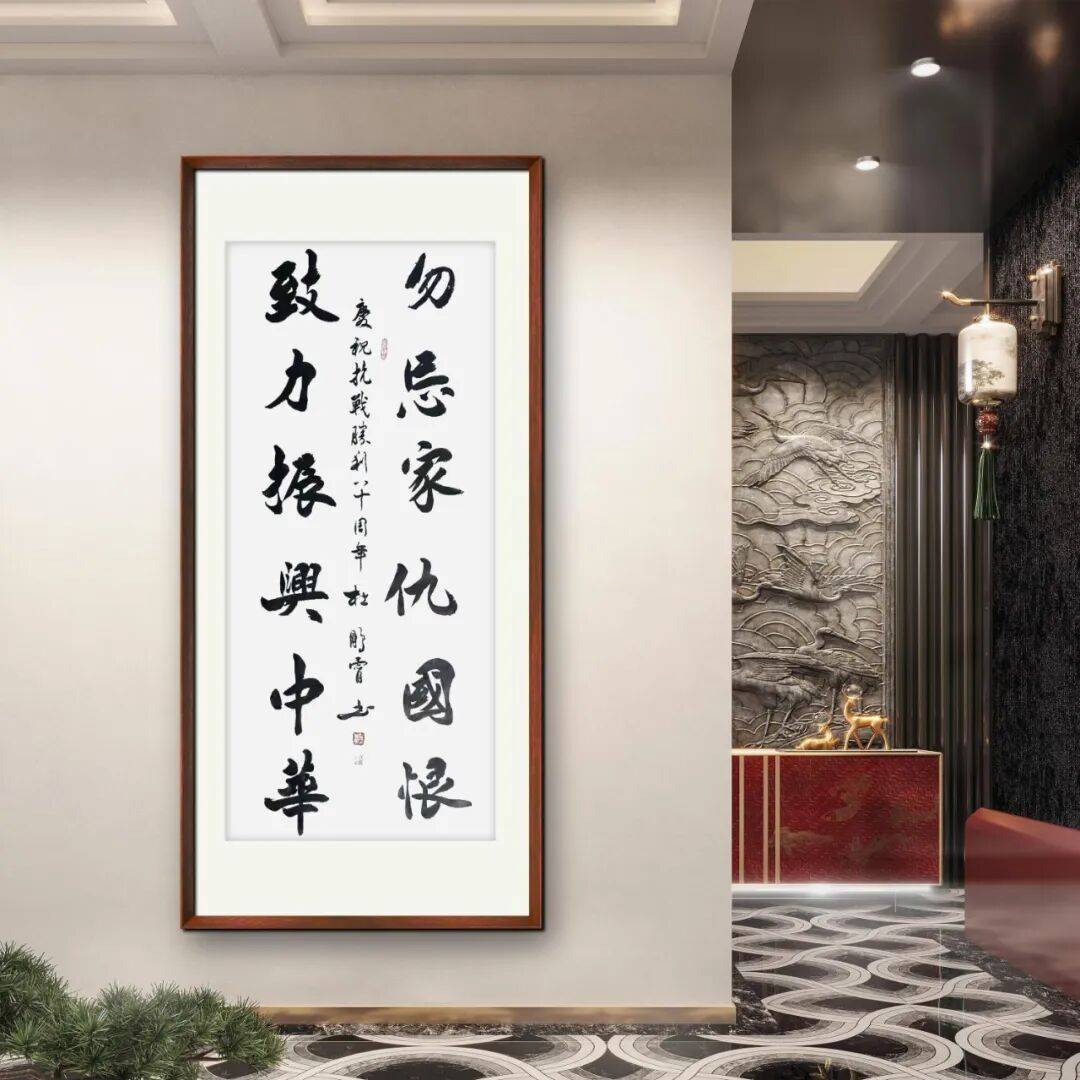 勿忘家仇國恨
致力振興中華
慶祝抗戰勝利八十周年 杜鵬霄书